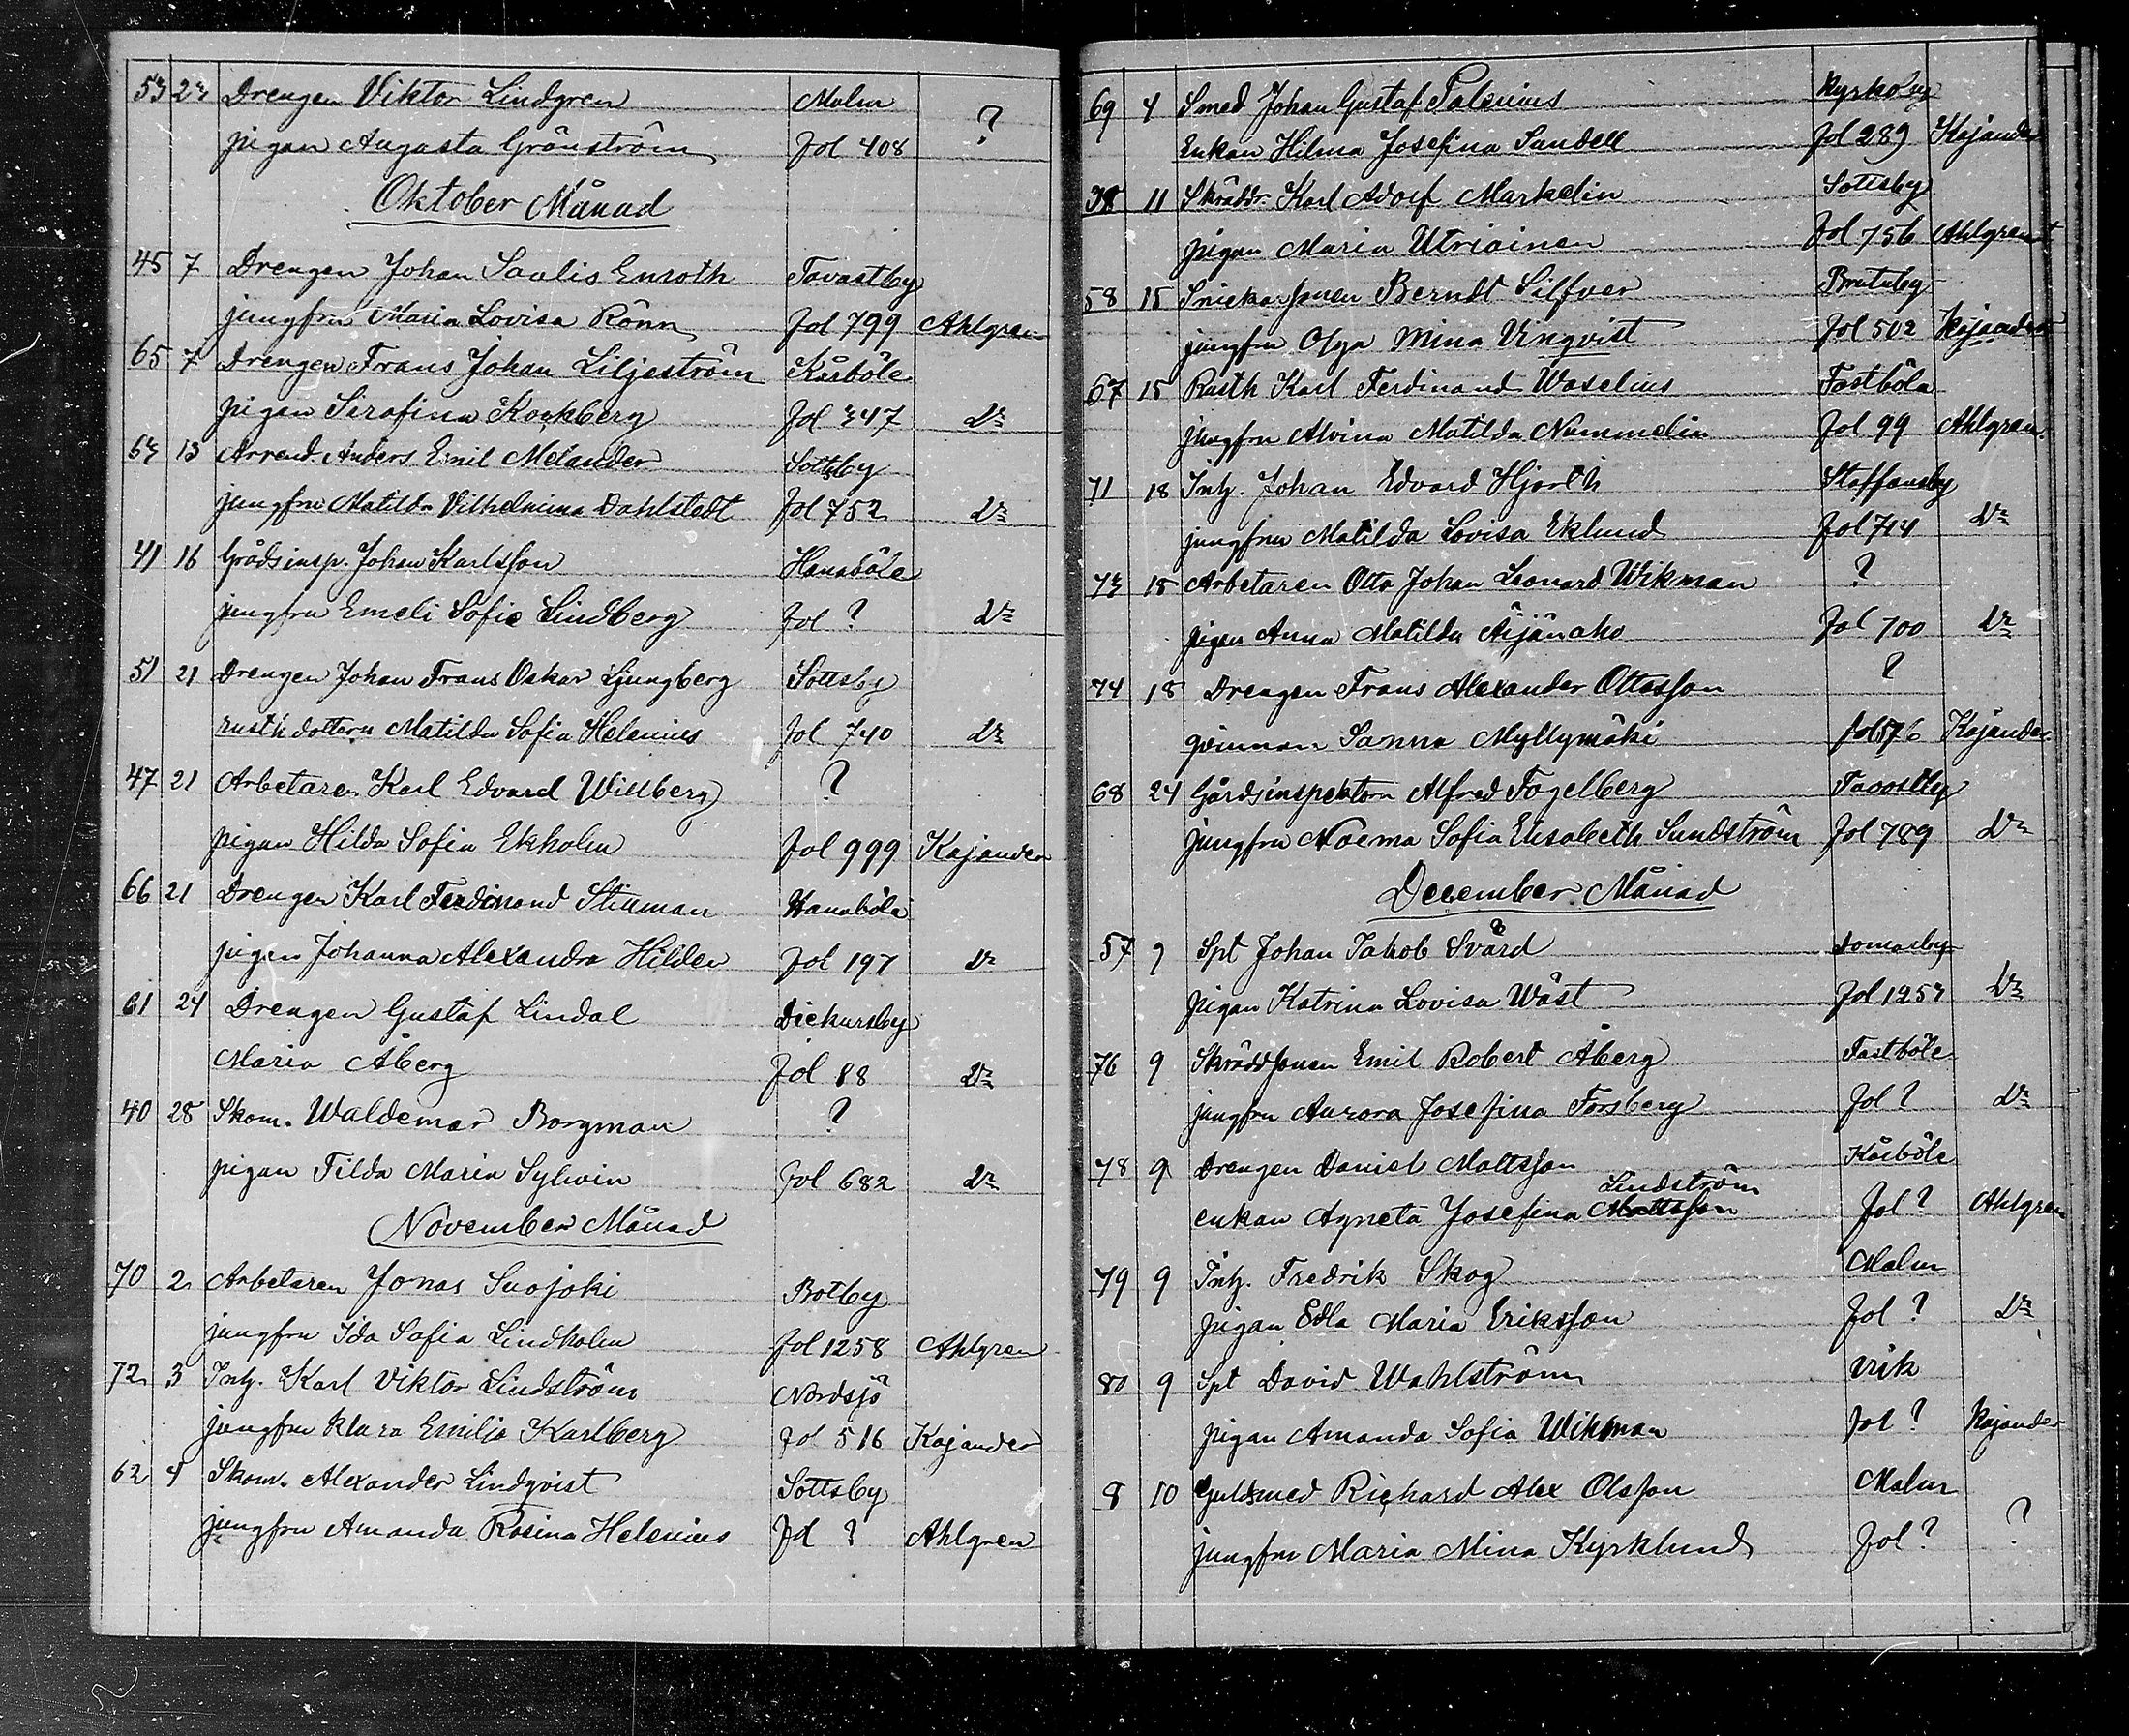 53 23 Drengen Viktor Lindgren Malm
pigan Augusta Grönström fol 408 ?
Oktober Månad
45 7 Drengen Johan Saulis Enroth Tavastby
jungfru Maria Lovisa Rönn fol 799 Ahlgren
65 7 Drengen Frans Johan Liljeström Kårböle
pigan Serafina Kockberg fol 347 Do
63 13 Arrend. Anders Emil Melander Sottsby
jungfru Matilda Vilhelmina Dahlstedt fol 752 Do
41 16 Gårdsinsp. Johan Karlsson Hanaböle
jungfru Emeli Sofie Lindberg fol ? Do
51 21 Drengen Johan Frans Oskar Ljungberg Sottsby
rusth dottern Matilda Sofia Helenius fol 740 Do
47 21 Arbetaren Karl Edvard Willberg ?
pigan Hilda Sofia Ekholm fol 999 Kajander
66 21 Drengen Karl Ferdinand Stinman Hanaböle
pigan Johanna Alexandra Hilden fol 197 Do
61 24 Drengen Gustaf Lindal Dickursby
Maria Åberg fol 88 Do
40 28 Skom. Waldemar Borgman ?
pigan Tilda Maria Sylwin fol 682 Do
November Månad
70 2 Arbetaren Jonas Suojoki Botby
jungfru Ida Sofia Lindholm fol 1258 Ahlgren
72 3 Inh. Karl Viktor Lindström Nordsjö
jungfru Klara Emilia Karlberg fol 516 Kajander
62 4 Skom. Alexander Lindqvist Sottsby
jungfru Amanda Rosina Helenius fol ? Ahlgren
69 4 Smed Johan Gustaf Palenius Kyrkoby
Enkan Hilma Josefina Sandell fol 289 Kajander
38 11 Skräddr. Karl Adolf Markelin Sottsby
pigan Maria Utriainen fol 756 Ahlgren
58 15 Snickarsonen Berndt Silfver Brutuby
jungfru Olga Mina Vinqvist fol 502 Kajander
67 15 Rusth Karl Ferdinand Waselius Fastböle
jungfru Alvina Matilda Nummelin fol 99 Ahlgren
71 18 Inh. Johan Edvard Hjorth Staffansby
jungfru Matilda Lovisa Eklund fol 714 Do
73 18 Arbetaren Otto Johan Leonard Wikman ?
pigan Anna Matilda Äijänaho fol 700 Do
74 18 Drengen Frans Alexander Ottosson ?
qvinnan Sanna Myllymäki fol 576 Kajander
68 24 Gårdsinspektorn Alfred Fogelberg Tavastby
jungfru Noema Sofia Elisabeth Sundström fol 789 Do
December Månad
57 9 Spt Johan Jakob Svärd Domarby
pigan Katrina Lovisa Wäst fol 1253 Do
76 9 Skräddsonen Emil Robert Åberg Fastböle
jungfru Aurora Josefina Forsberg fol ? Do
78 9 Drengen Daniel Mattsson Kårböle
Lindström
enkan Agneta Josefina Mattsson fol ? Ahlgren
79 9 Inh. Fredrik Skog Malm
pigan Edla Maria Eriksson fol ? Do
80 9 Spt David Wahlström Vik
pigan Amanda Sofia Wikman fol ? Kajander
8 10 Guldsmed Richard Alex Olsson Malm
jungfru Maria Mina Kyrklund fol ? ?